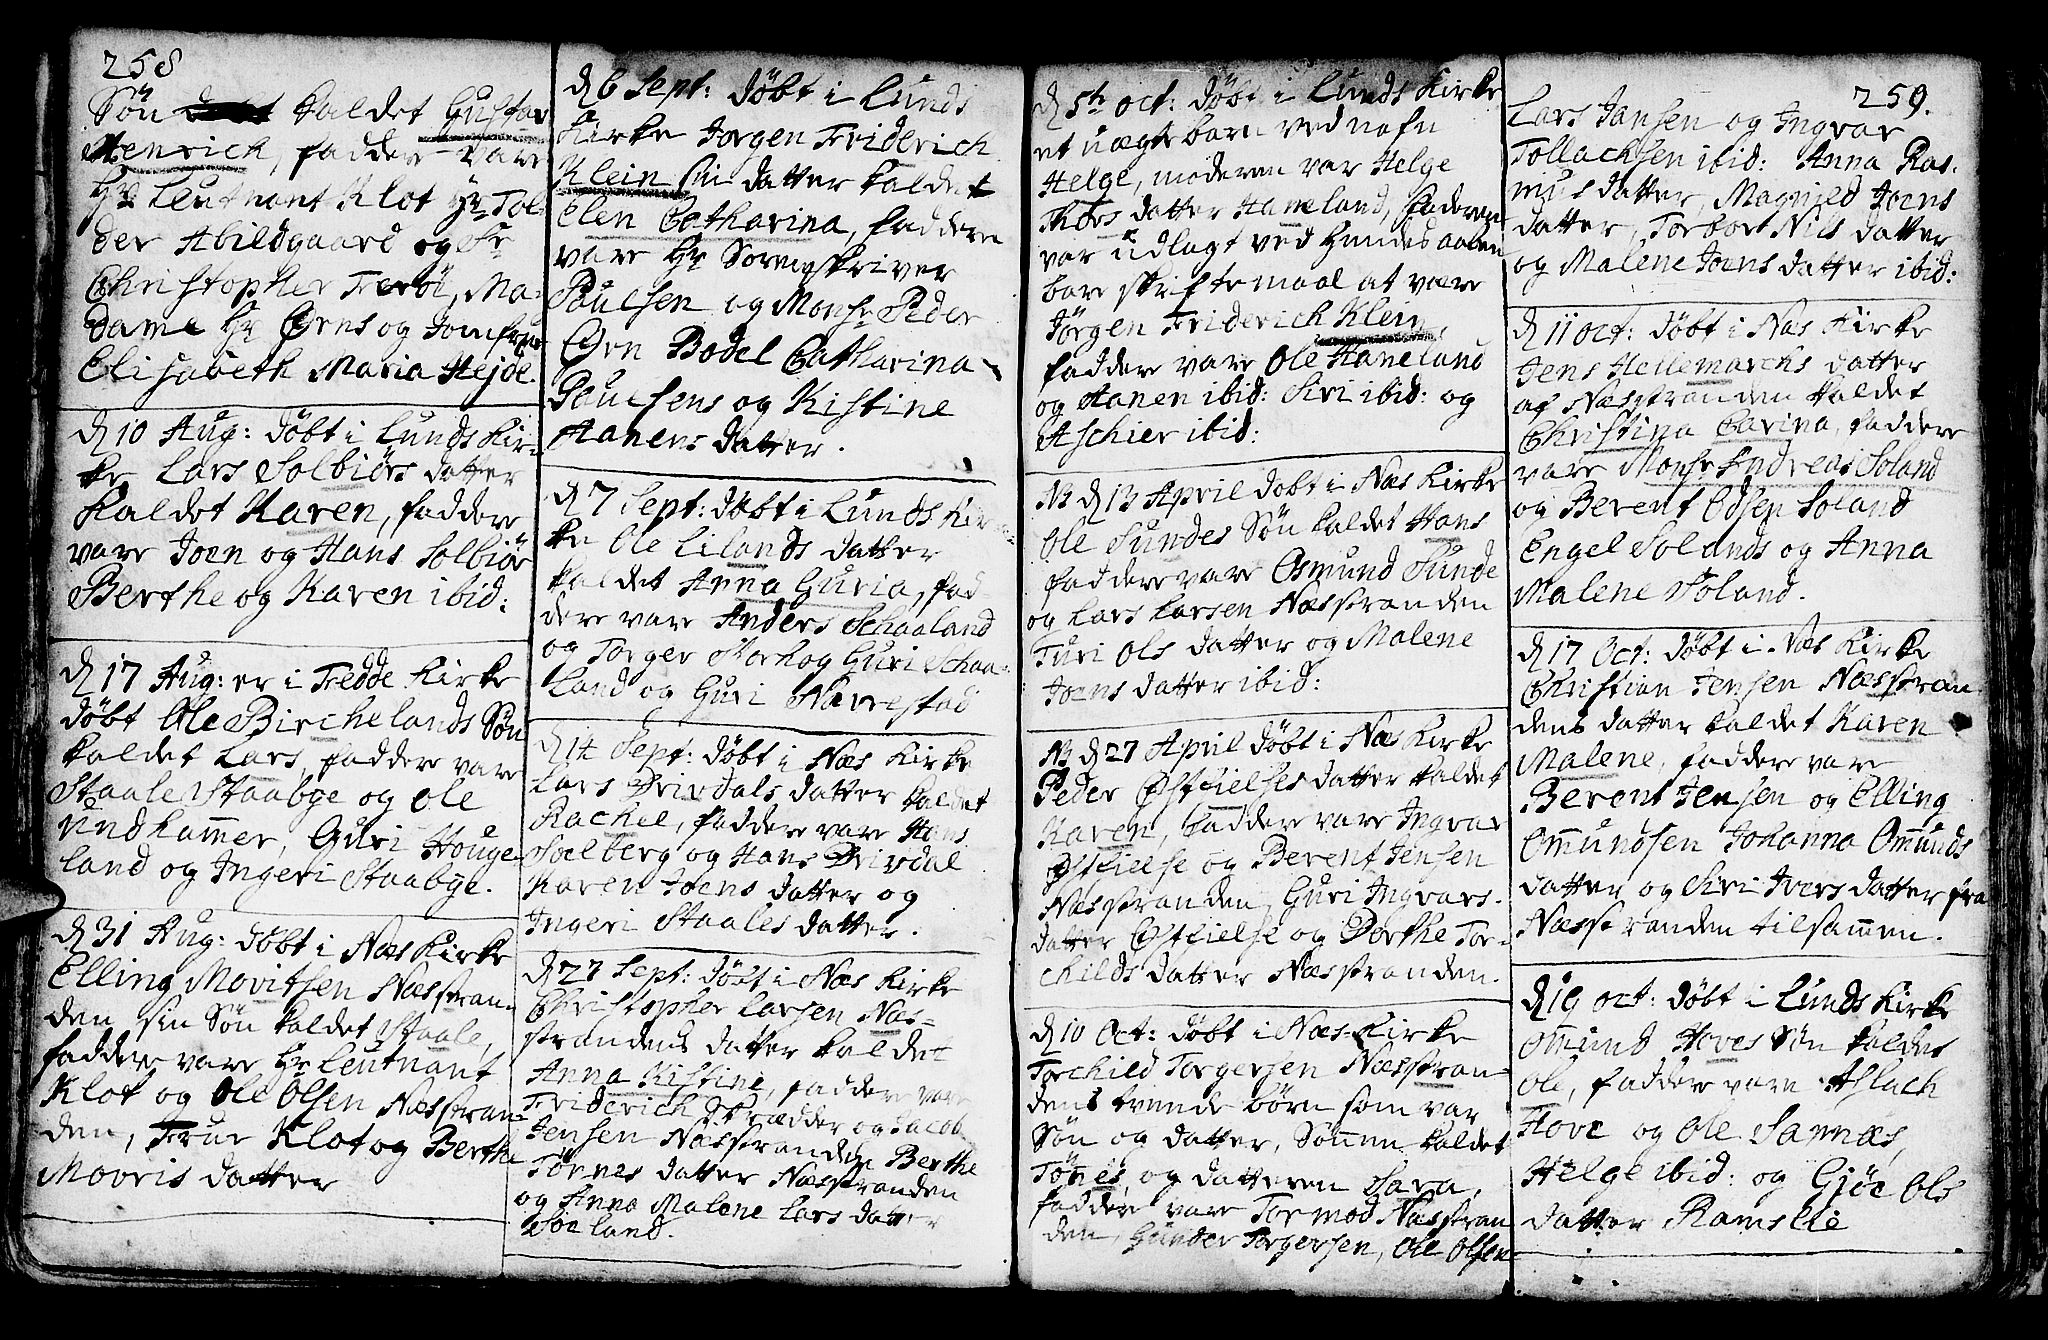 258
Søn kaldet Gustav
Henrich, faddere vare
Hr Leutnant Klot Hr Tol-
der Abildgaard og Sr
Christopher Feröe, Ma-
dame Hr Ørns og Jomfrue
Elisabeth Maria Hejde.
d 10 Aug: döbt i Lunds Kir-
ke Lars Solbiörs datter
kaldet Karen, faddere
vare Joen og Hans Solbiör
Berthe og Karen ibid:
d 17 Aug: er i Fedde Kirke
döbt Ole Birchelands Søn
kaldet Lars, faddere vare
Staale Staabye og Ole
Undhammer, Guri Houge-
land og Ingeri Staabye.
d 31 Aug: döbt i Næs Kirke
Elling Movitsen Næsstran-
den sin Søn kaldet Staale,
faddere vare Hr Leutnant
Klot og Ole Olsen Næsstran-
den, Frue Klot og Berthe
Movris datter
d 6 Sept: döbt i Lunds
Kirke Jørgen Friderich
Klein sin datter kaldet
Elen Catharina, faddere
vare Hr Sorenskriver
Pouelsen og Monsr Peder
Ørn Bodel Catharina
Pouelsens og Kistine
Hanens datter.
d 7 Sept: döbt i Lunds Kir-
ke Ole Lilands datter
kaldet Anna Guria, fad-
dere vare Anders Schaaland
og Torger Mörkog Guri Schaa-
land og Guri Nävrestad
d 14 Sept: döbt i Næs Kirke
Lars Drivdals datter kaldet
Rachel, faddere vare Hans
Soelberg og Hans Drivdal
Karen Joens datter og
Ingeri Staales datter.
d 27 Sept: döbt i Næs Kirke
Christopher Larsen Næs-
strandens datter kaldet
Anna Kistine, faddere vare
Friderich Skrædder og Jacob
Jensen Næsstranden Berthe
Törres datter Næsstranden
og Anna Malene Lars datter
Soeland.
d 5te Oct: döbt i Lunds Kirke
et uægte barn ved nafn
Helge, moderen var Helge
Thors datter Haneland, Faderen
var udlagt ved Hendes aaben
bare skriftemaal at være
Jørgen Friderich Klein,
faddere vare Ole Haneland
og Hanen ibid: Siri ibid: og
Aschier ibid:
NB d 13 April döbt i Næs Kirke
Ole Sundes Søn kaldet Hans
faddere vare Osmund Sunde
og Lars Larsen Næsstranden
Turi Ols datter og Malene
Joens datter ibid:
NB d 27 April döbt i Næs Kirke
Peder Østfielses datter kaldet
Karen, faddere vare Ingvar
Østfielse og Berent Jensen
Næsstranden, Guri Ingvars-
datter Østfielse og Dorthe Tor-
childs datter Næsstranden.
d 10 Oct: döbt i Næs Kirke
Torchild Torgersen Næsstran-
dens tvende børn som var
Søn og datter, Sønnen kaldet
Tönes, og datteren Sara,
faddere vare Tormod Næsstran
den, Gunder Torgersen, Ole Olsen
259.
Lars Jansen og Ingvar
Tollachsen ibid: Anna Ras-
mus datter, Magnild Joens
datter, Torbor Nils datter
og Malene Joens datter ibid:
d 11 Oct: döbt i Næs Kirke
Jens Hellemarchs datter
af Næsstranden kaldet
Christina Carina, faddere
vare Monsr Andreas Soland
og Berent Edsen Soland
Engel Solands og Anna
Malene Soland.
d 17 Oct: döbt i Næs Kirke
Christian Jensen Næsstran-
dens datter kaldet Karen
Malene, faddere vare
Berent Jensen og Elling
Omundsen Johanna Omunds
datter og Siri Ivers datter fra
Næsstranden tilsammen.
d 19 Oct: döbt i Lunds Kirke
Omund Hoves Søn kaldet
Ole, faddere vare Aslach
Hove og Ole Sannæs,
Helge ibid: og Gjöe Ols
datter Ramslie